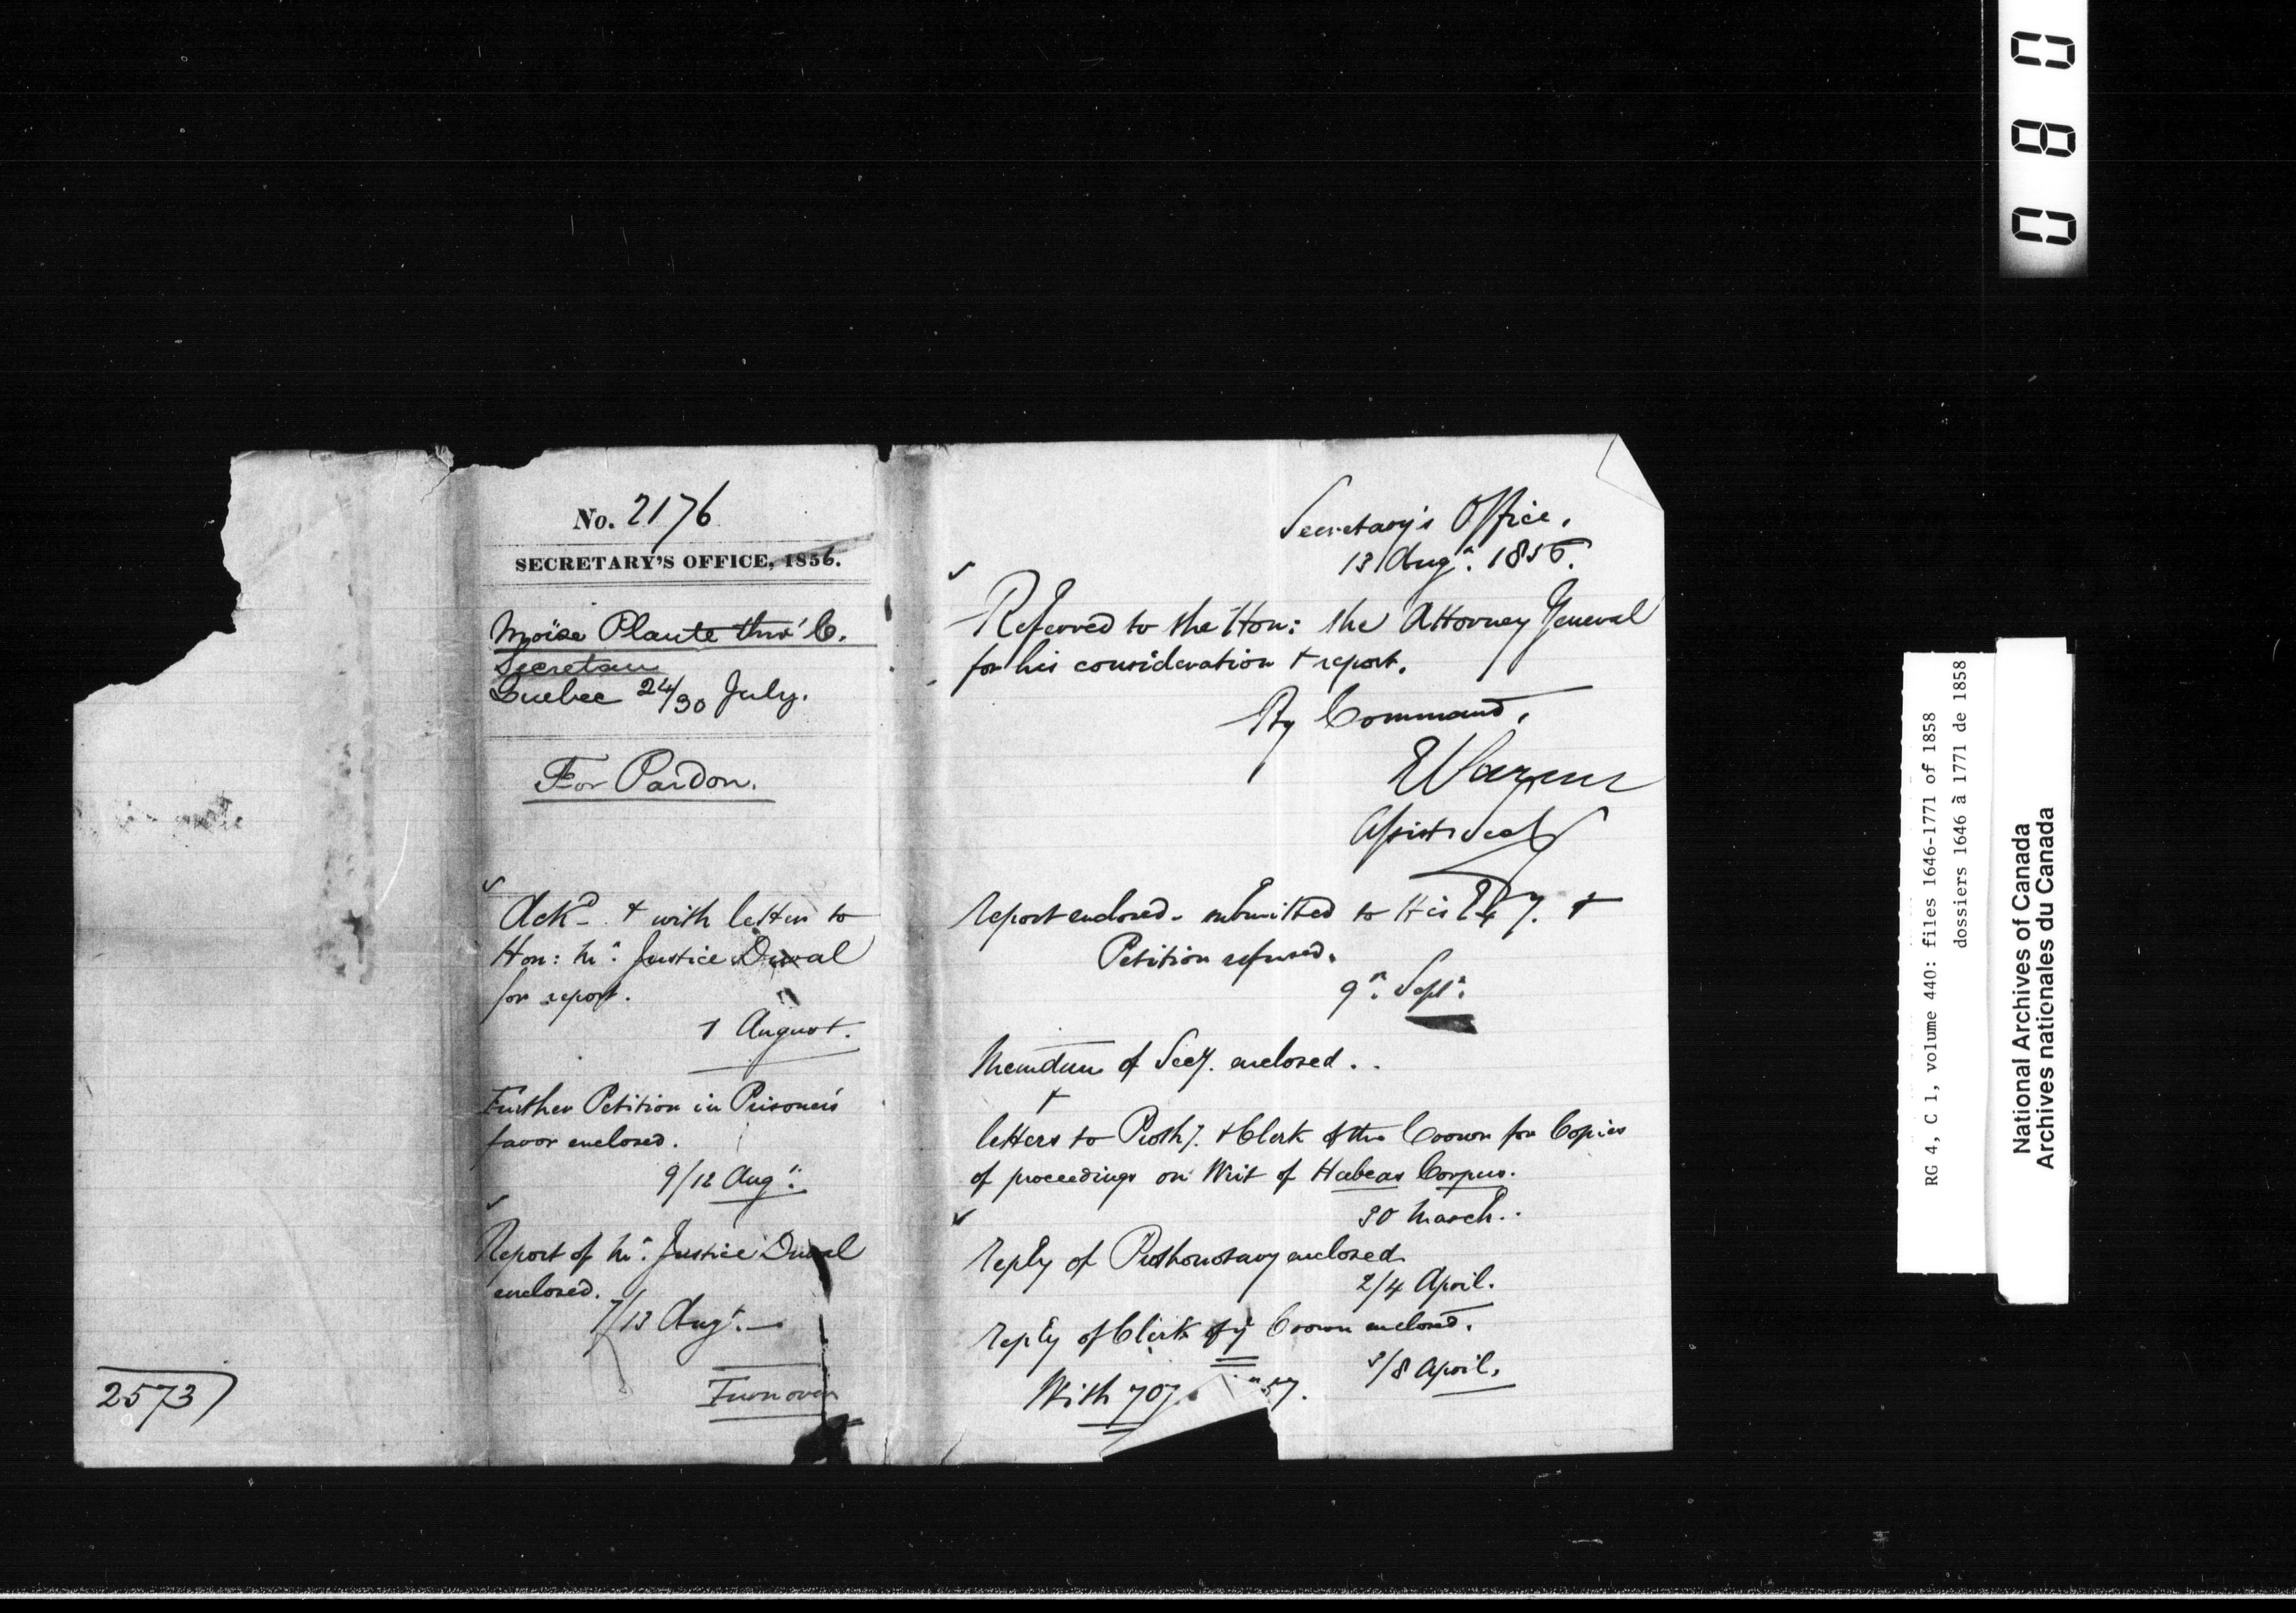 No. 2176
SECRETARY'S OFFICE, 1856.
Moïse Plante thro' C.
Secretan
Quebec 24/30 July.
For Pardon.
Ackd. + with letter to
Hon: Mr. Justice Duval
for report.
1 August.
Further Petition in Prisoner's
favor enclosed.
9/12 Augt.
Report of Mr. Justice Duval
enclosed.
7/13 Augt.
Turn over
2573
Secretary's Office,
13 Augt. 1856.
Referred to the Hon: the Attorney General
for his consideration + report.
By Command,
Assist Secy
Report enclosed. submitted to His Exy. +
Petition refused.
9th. Sept.
Memdum of Secy. enclosed..
+
letters to Prothy. + Clerk of the Crown for Copies
of proceedings on Writ of Habeas Corpus.
30 March..
Reply of Prothonotary enclosed
2/4 April.
Reply of Clerk of ye Crown enclosed.
/8 April.
With 707. 57.
080
RG 4, C 1, volume 440: files 1646-1771 of 1858
dossiers 1646 à 1771 de 1858
National Archives of Canada
Archives nationales du Canada